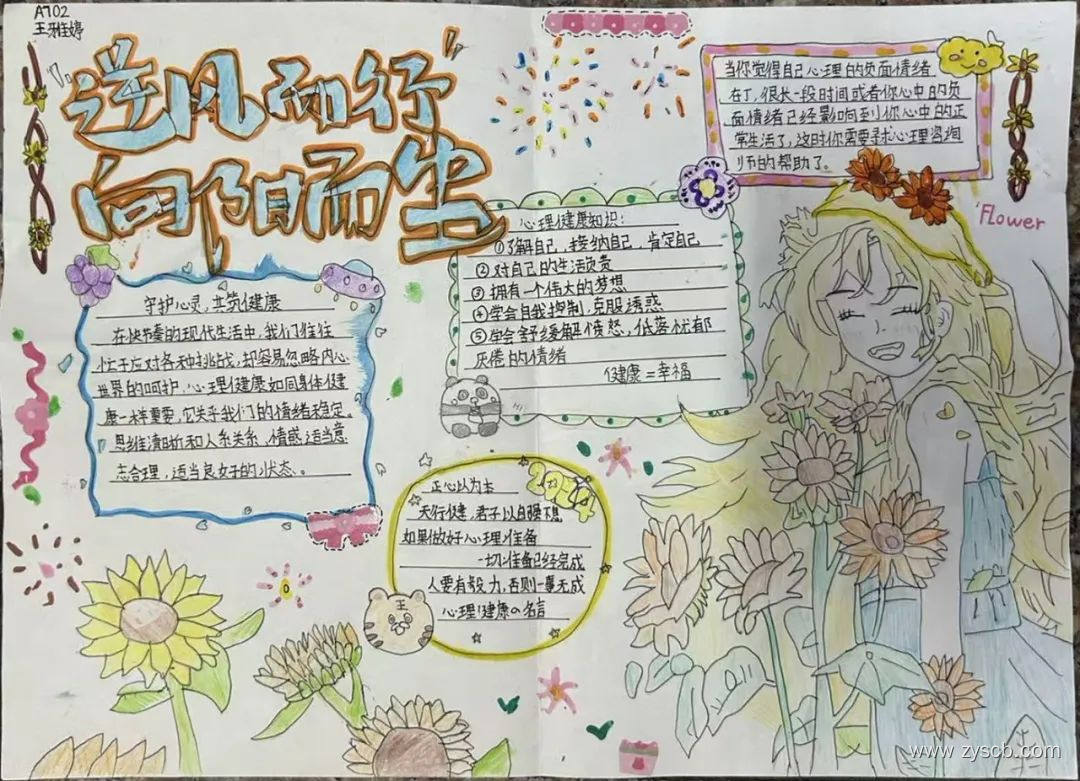 A702
王雅婷
逆风而行
向阳而生
当你觉得自己心理的负面情绪
在了很长一段时间或者你心中的负
面情绪已经影响到你心中的正
常生活了,这时你需要寻求心理咨询
师的帮助了。
Flower
心理健康知识:
①了解自己,接纳自己,肯定自己
②对自己的生活负责
③拥有一个伟大的梦想
④学会自我抑制,克服诱惑
⑤学会舒缓解愤怒,低落忧郁
厌倦的情绪
健康=幸福
守护心灵,共筑健康
在快节奏的现代生活中,我们往往
忙于应对各种挑战,却容易忽略内心
世界的呵护.心理健康如同身体健
康一样重要,它关乎我们的情绪稳定.
思维清晰和人系关系,情感适当意
志合理,适当良好的状态。
2024
正心以为本
天行健,君子以自强不息
如果做好心理准备
一切准备已经完成
人要有毅力,否则一事无成
心理健康の名言
王
www.zyscb.com